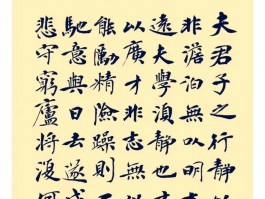 夫君子之行靜
非澹泊無以明
遠夫學須靜也
以廣才非志無
能勵精險躁則
馳意與日去遂成
悲守窮廬將復何